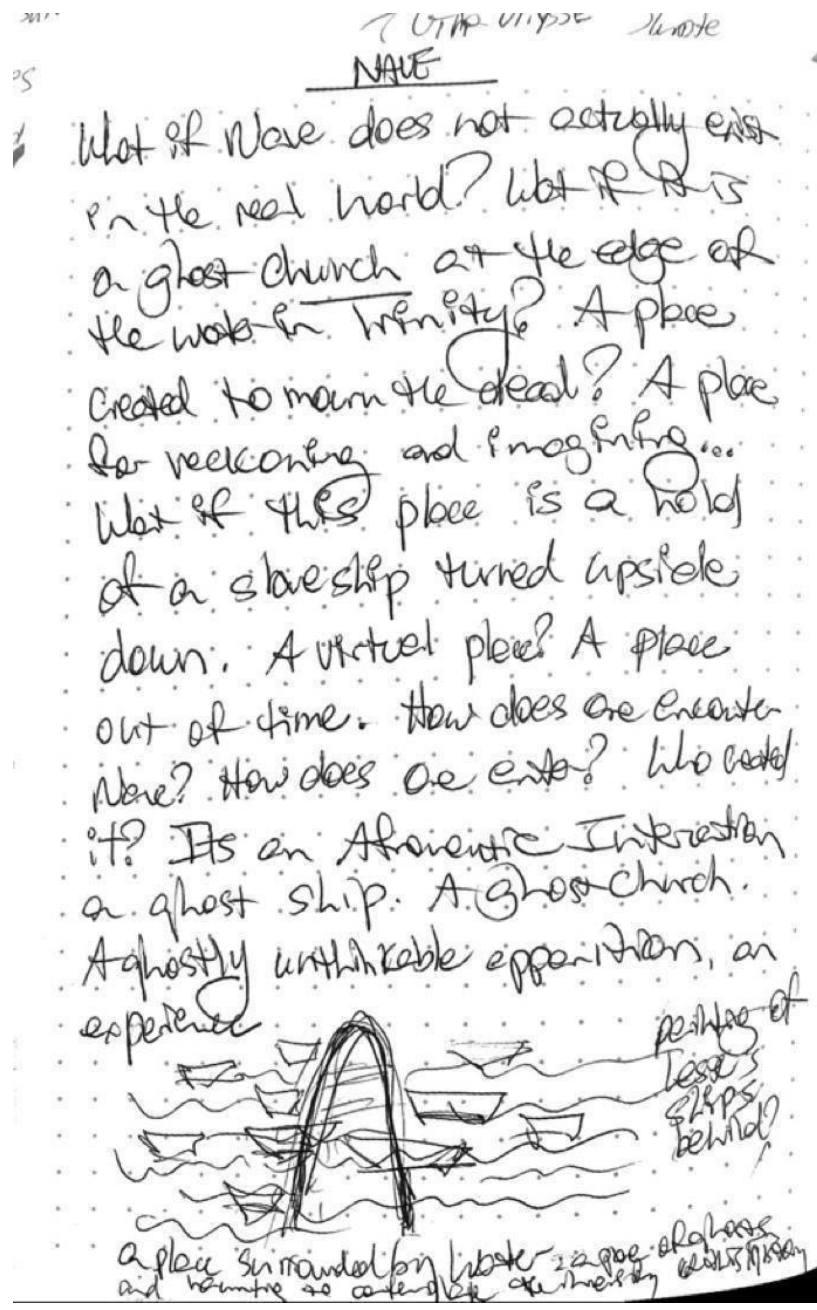 NAVE
What if Nave does not actually exist
in the real world? What if it is
a ghost church at the edge of
the water in Trinity? A place
created to mourn the dead? A place
for reckoning and imagining...
What if this place is a hold
of a slave ship turned upside
down. A virtual place? A place
out of time. How does one encounter
Nave? How does one enter? Who created
it? Its an Afromantic Intersection
a ghost ship. A ghost church.
A ghostly unthinkable apparition, an
experience
painting of
ships
behind?
a place surrounded by water
and haunting to contemplate the